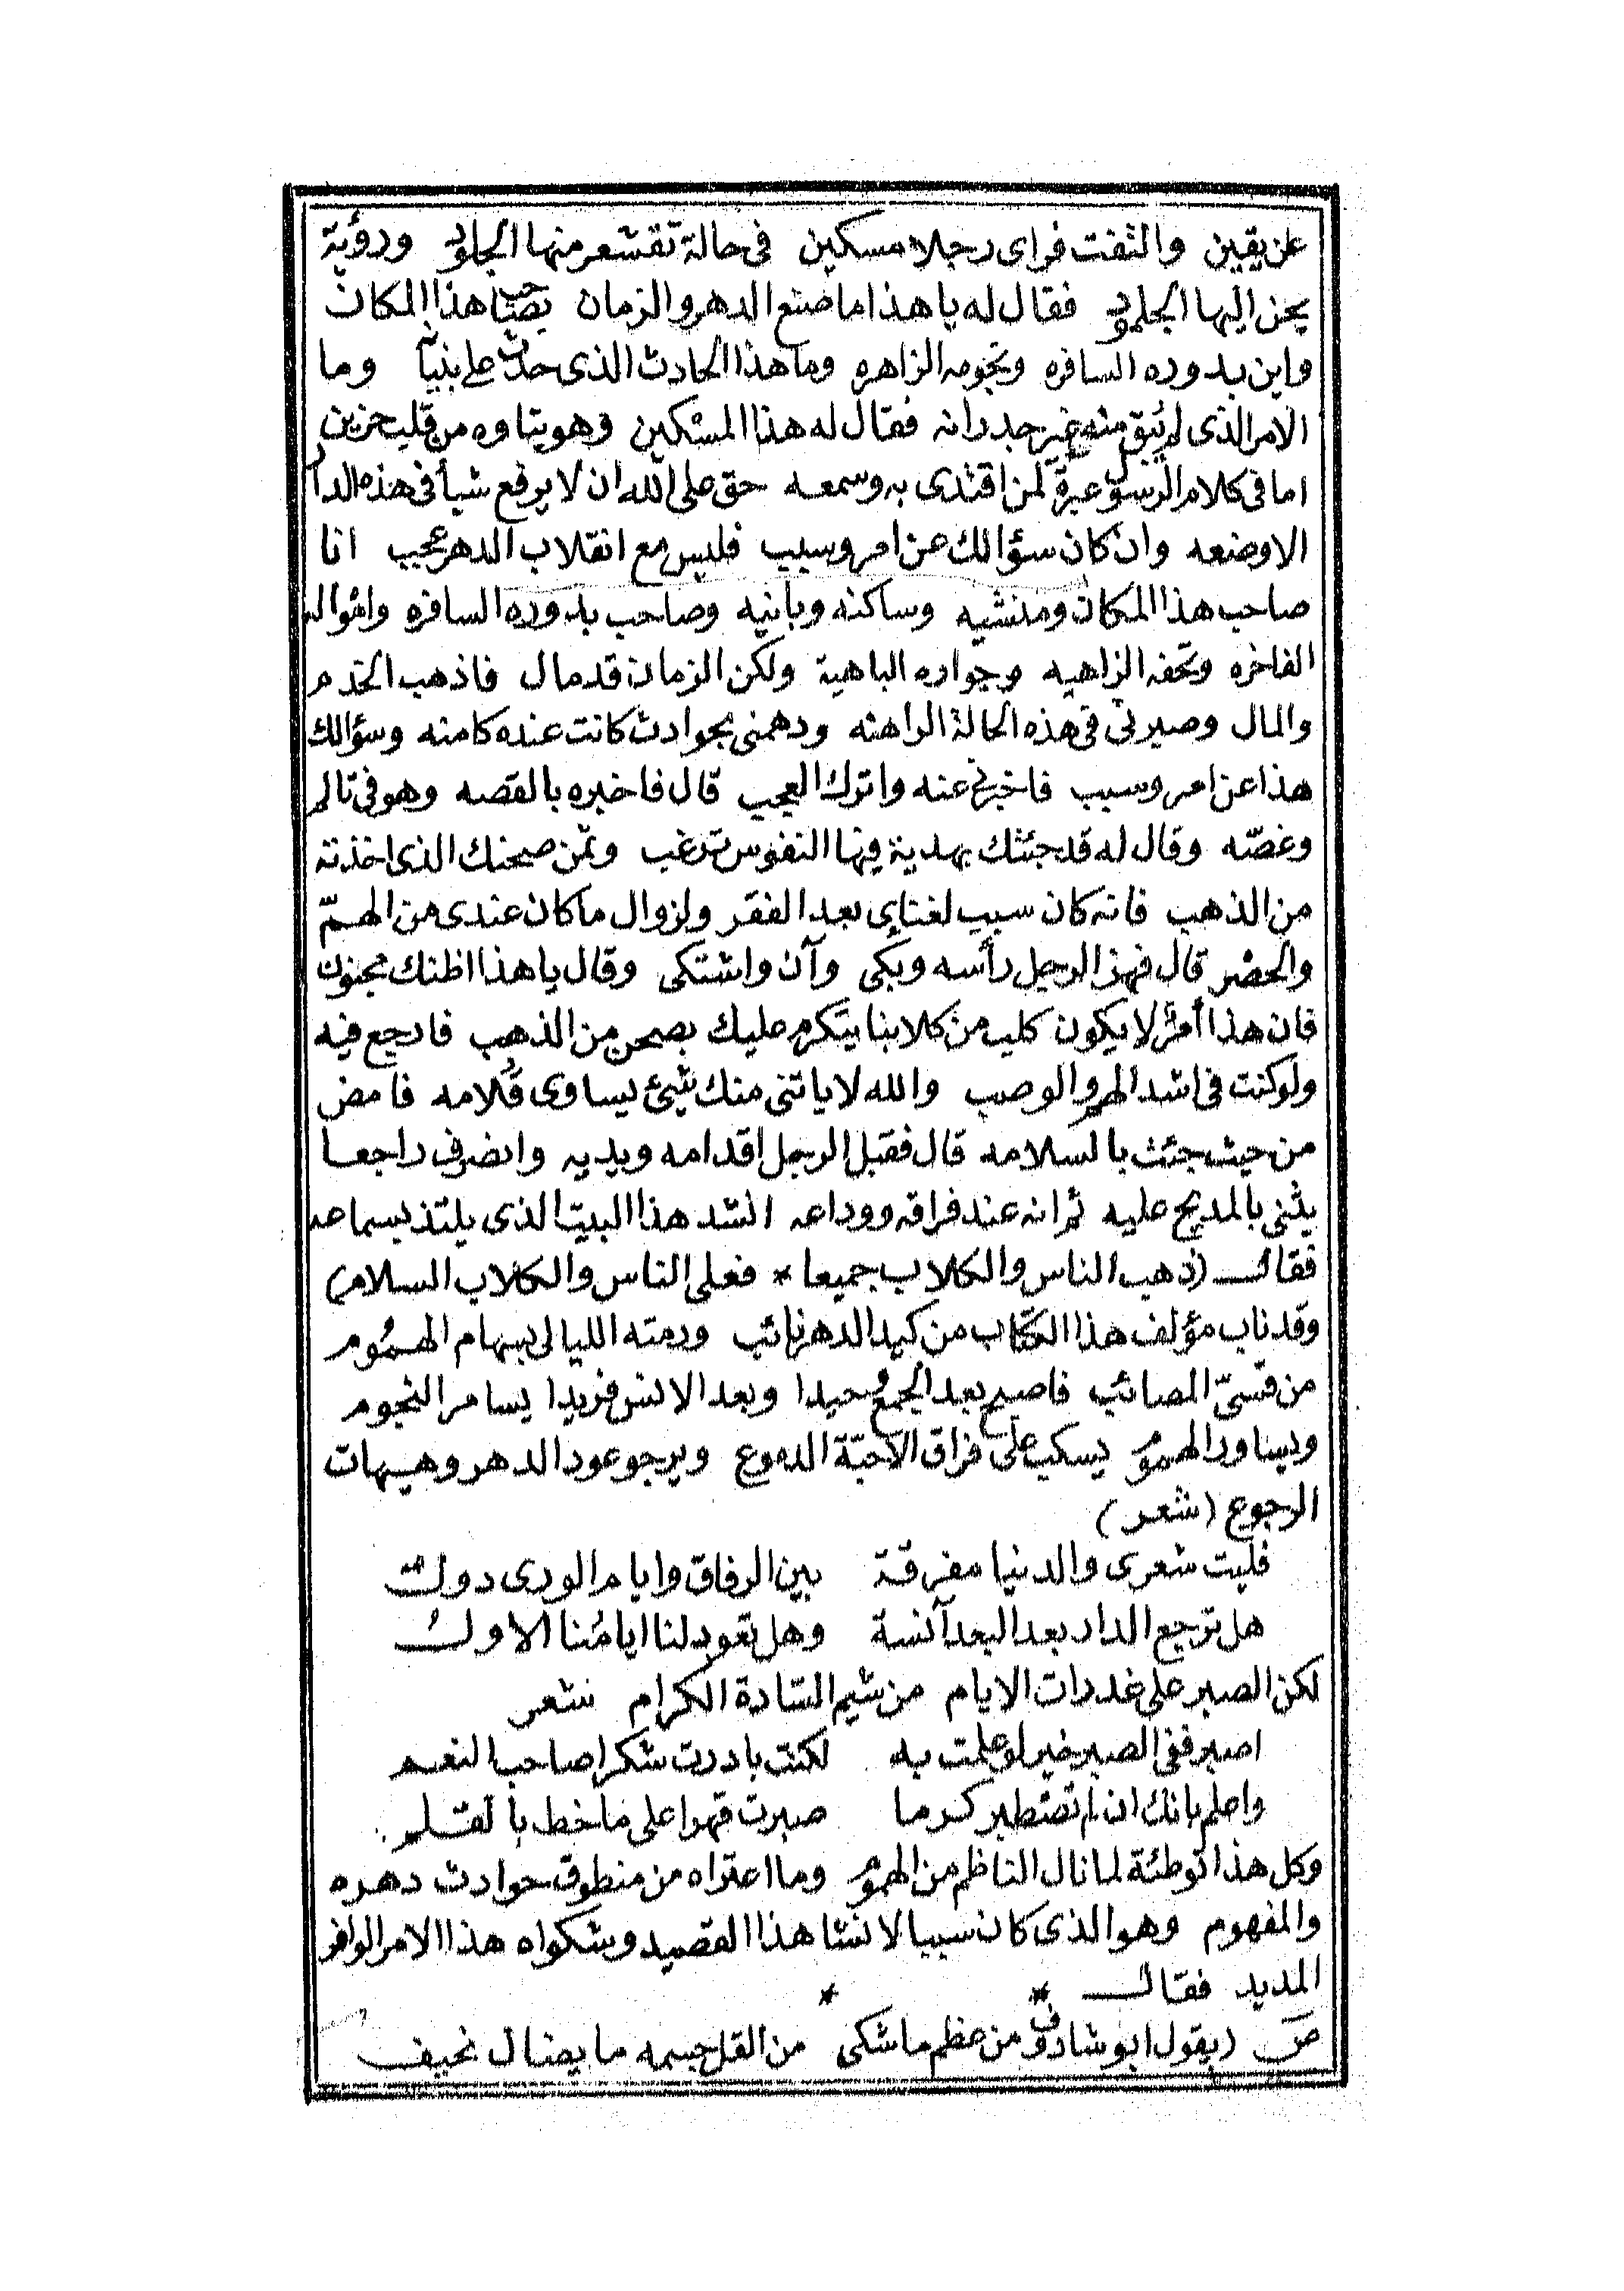 عن يقين والتفت فراى رجلا مسكين فى حالة تقشعر منها الجلود ورؤية
يحن اليها الجلمود فقال له يا هذا ما صنع الدهر والزمان بصاحب هذا المكان
واين بدوره السافره ونجومه الزاهره وما هذا الحادث الذى حدث على بنيانه وما
الامر الذى لم يبق منه غير جدرانه فقال له هذا المسكين وهو يتاوه من قلب حزين
اما فى كلام الرسول عبرة لمن اقتدى به وسمعه حق على الله ان لا يرفع شيأ فى هذه الدار
الا وضعه وان كان سؤالك عن امر وسبب فليس مع انقلاب الدهر عجيب انا
صاحب هذا المكان ومنشيه وساكنه وبانيه وصاحب بدوره السافره وامواله
الفاخره وتحفه الزاهيه وجواره الباهية ولكن الزمان قد مال فاذهب الخدم
والمال وصيرنى فى هذه الحالة الراهنه ودهمنى بحوادث كانت عنده كامنه وسؤالك
هذا عن امر وسبب فاخبرنى عنه واترك العجب قال فاخبره بالقصه وهو فى تالم
وغصّه وقال له قد جئتك بهدية فيها النفوس ترغب وثمن صحنك الذى اخذته
من الذهب فانه كان سبب لغناى بعد الفقر ولزوال ما كان عندى من الهمّ
والحصْر قال فهز الرجل رأسه وبكى وآن واشتكى وقال يا هذا اظنك مجنون
فان هذا أمرٌ لا يكون كلب من كلابنا يتكرم عليك بصحن من الذهب فارجع فيه
ولو كنت فى اشد الهم والوصب والله لا ياتنى منك شيئ يساوى قُلامه فامض
من حيث جئت بالسلامه قال فقبل الرجل اقدامه ويديه وانصرف راجعا
يثنى بالمديح عليه ثم انه عند فراقه ووداعه انشد هذا البيت الذى يلتذ بسماعه
فقال (ذهب الناس والكلاب جميعا * فعلى الناس والكلاب السلام)
وقد ناب مؤلف هذا الكتاب من كيد الدهر نائب ورمته الليالى بسهام الهموم
من قسىّ المصائب فاصبح بعد الجمع وحيدا وبعد الانس فريدا يسامر النجوم
ويساور الهموم يسكب على فراق الاحبّة الدموع ويرجو عود الدهر وهيهات
الرجوع (شعر)
فليت شعرى والدنيا مفرقة بين الرفاق وايام الورى دول
هل ترجع الدار بعد البعد آنسة وهل تعود لنا ايامُنا الاول
لكن الصبر على غدرات الايام من شيم السّادة الكرام شعر
اصبر ففى الصبر خير لو علمت به لكنت بادرت شكرا صاحب النعم
واعلم بانك ان لم تصطبر كرما صبرت قهرا على ما خط بالقلم
وكل هذا توطئة لما نال الناظم من الهموم وما اعتراه من منطوق حوادث دهره
والمفهوم وهو الذى كان سببا لانشا هذا القصيد وشكواه هذا الامر الوافر
المديد فقال * *
ص (يقول ابو شادوف من عظم ما شكى من القل جسمه ما يضال نحيف